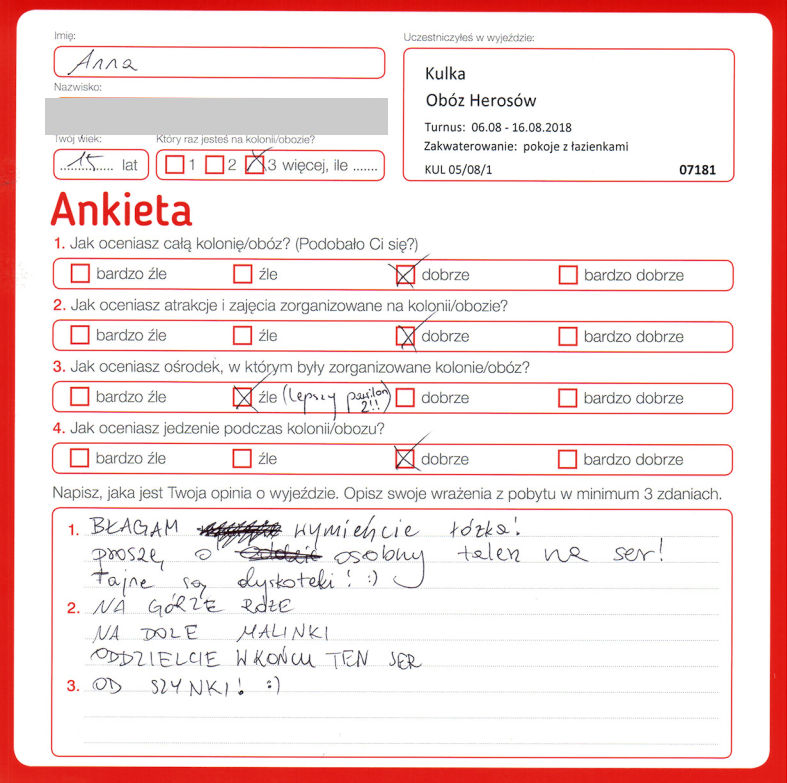 Imię:
Anna
Nazwisko:
Twój wiek:
15 lat
Który raz jesteś na kolonii/obozie?
1 2 3 więcej, ile .......
Uczestniczyłeś w wyjeździe:
Kulka
Obóz Herosów
Turnus: 06.08 - 16.08.2018
Zakwaterowanie: pokoje z łazienkami
KUL 05/08/1 07181
Ankieta
1. Jak oceniasz całą kolonię/obóz? (Podobało Ci się?)
bardzo źle źle dobrze bardzo dobrze
2. Jak oceniasz atrakcje i zajęcia zorganizowane na kolonii/obozie?
bardzo źle źle dobrze bardzo dobrze
3. Jak oceniasz ośrodek, w którym były zorganizowane kolonie/obóz?
bardzo źle źle (lepszy pawilon 2!!) dobrze bardzo dobrze
4. Jak oceniasz jedzenie podczas kolonii/obozu?
bardzo źle źle dobrze bardzo dobrze
Napisz, jaka jest Twoja opinia o wyjeździe. Opisz swoje wrażenia z pobytu w minimum 3 zdaniach.
1. BŁAGAM wymieńcie łóżka!
proszę o osobny talerz na ser!
Fajne są dyskoteki! :)
2. NA GÓRZE RÓŻE
NA DOLE MALINKI
ODDZIELCIE WKOŃCU TEN SER
3. OD SZYNKI! :)